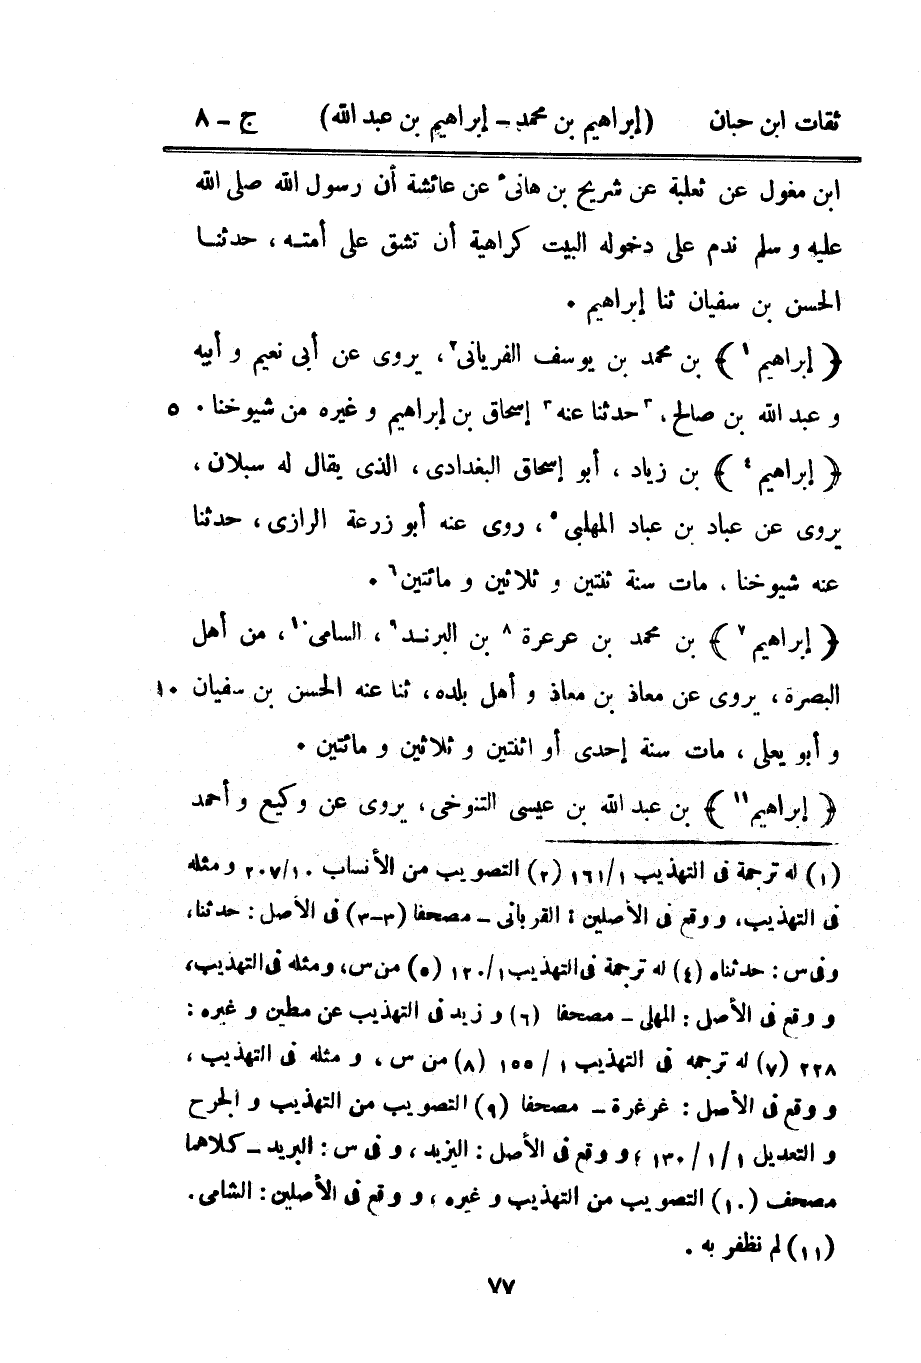 ثقات ابن حبان (إبراهيم بن محمد – إبراهيم بن عبد الله) ج – ٨
ابن مغول عن ثعلبة عن شريح بن هانىء عن عائشة أن رسول الله صلى الله
عليه و سلم ندم على دخوله البيت كراهية أن تشق على أمته ، حدثنا
الحسن بن سفيان ثنا إبراهيم .
﴿ إبراهيم ١ ﴾ بن محمد بن يوسف الفريانى٢ ، يروى عن أبى نعيم و أبيه
و عبد الله بن صالح ، ٣ حدثنا عنه ٣ إسحاق بن إبراهيم و غيره من شيوخنا . ٥
﴿ إبراهيم ٤ ﴾ بن زياد ، أبو إسحاق البغدادى ، الذى يقال له سبلان ،
يروى عن عباد بن عباد المهلبى ٥ ، روى عنه أبو زرعة الرازى ، حدثنا
عنه شيوخنا ، مات سنة ثنتين و ثلاثين و مائتين ٦ .
﴿ إبراهيم ٧ ﴾ بن محمد بن عرعرة ٨ بن البرند ٩ ، السامى ١٠ ، من أهل
البصرة ، يروى عن معاذ بن معاذ و أهل بلده ، ثنا عنه الحسن بن سفيان ١٠
و أبو يعلى ، مات سنة إحدى أو اثنتين و ثلاثين و مائتين .
﴿ إبراهيم ١١ ﴾ بن عبد الله بن عيسى التنوخى ، يروى عن وكيع و أحمد
(١) له ترجمة فى التهذيب ١/١٦١ (٢) التصويب من الأنساب ١٠/٢٠٧ و مثله
فى التهذيب، و وقع فى الأصلين : القربانى – مصحفا (٣–٣) فى الأصل : حدثنا،
وفى س : حدثناه (٤) له ترجمة فى التهذيب ١/١٢٠ (٥) من س، و مثله فى التهذيب،
و وقع فى الأصل : المهلى – مصحفا (٦) و زيد فى التهذيب عن مطين و غيره :
٢٢٨ (٧) له ترجمه فى التهذيب ١ / ١٥٥ (٨) من س ، و مثله فى التهذيب ،
و وقع فى الأصل : غرغرة – مصحفا (٩) التصويب من التهذيب و الجرح
و التعديل ١ /١ /١٣٠ ؛ و وقع فى الأصل : اليزيد ، و فى س : البريد – كلاهما
مصحف (١٠) التصويب من التهذيب و غيره ، و وقع فى الأصلين : الشامى .
(١١) لم نظفر به .
٧٧